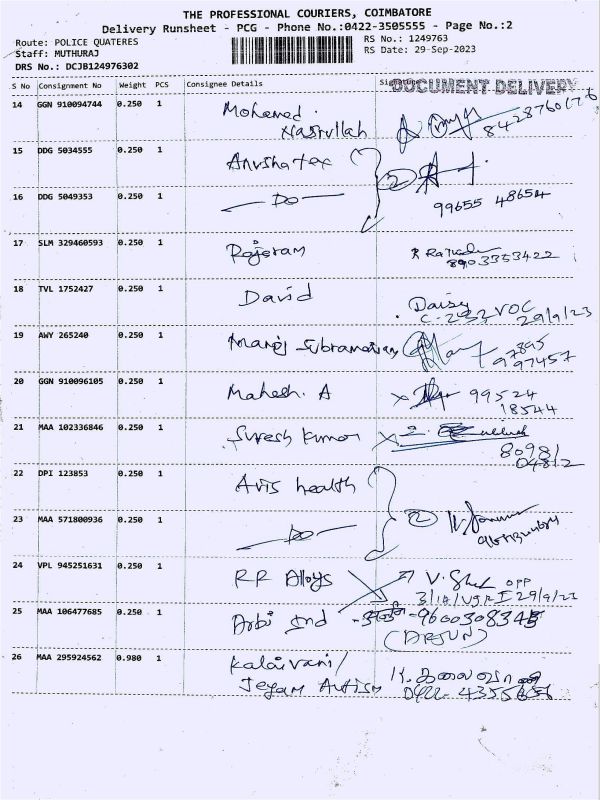 THE PROFESSIONAL COURIERS, COIMBATORE
Delivery Runsheet - PCG - Phone No.:0422-3505555 - Page No.:2
Route: POLICE QUATERES
RS No.: 1249763
Staff: MUTHURAJ
RS Date: 29-Sep-2023
DRS No.: DCJB124976302
S No Consignment No Weight PCS Consignee Details Signature
DOCUMENT DELIVERY
14 GGN 910094744 0.250 1 Mohamed
Nasrullah
8428760176
15 DDG 5034555 0.250 1 Anusha tex
2
16 DDG 5049353 0.250 1 — Do —
99655 48654
17 SLM 329460593 0.250 1 Rajaram
8903353422
18 TVL 1752427 0.250 1 David Daisy
C-293 VOC
29/9/23
19 AWY 265240 0.250 1 Manoj Subramaniam
97895
97457
20 GGN 910096105 0.250 1 Mahesh. A 99524
18544
21 MAA 102336846 0.250 1 Suresh Kumar
80981
04812
22 DPI 123853 0.250 1 Avis health
23 MAA 571800936 0.250 1 — Do — 2
24 VPL 945251631 0.250 1 RR Alloys
OPP
29/9/23
25 MAA 106477685 0.250 1 Arbi Ind
(ARJUN)
26 MAA 295924562 0.980 1 Kalaivani/
Jeyam Autism